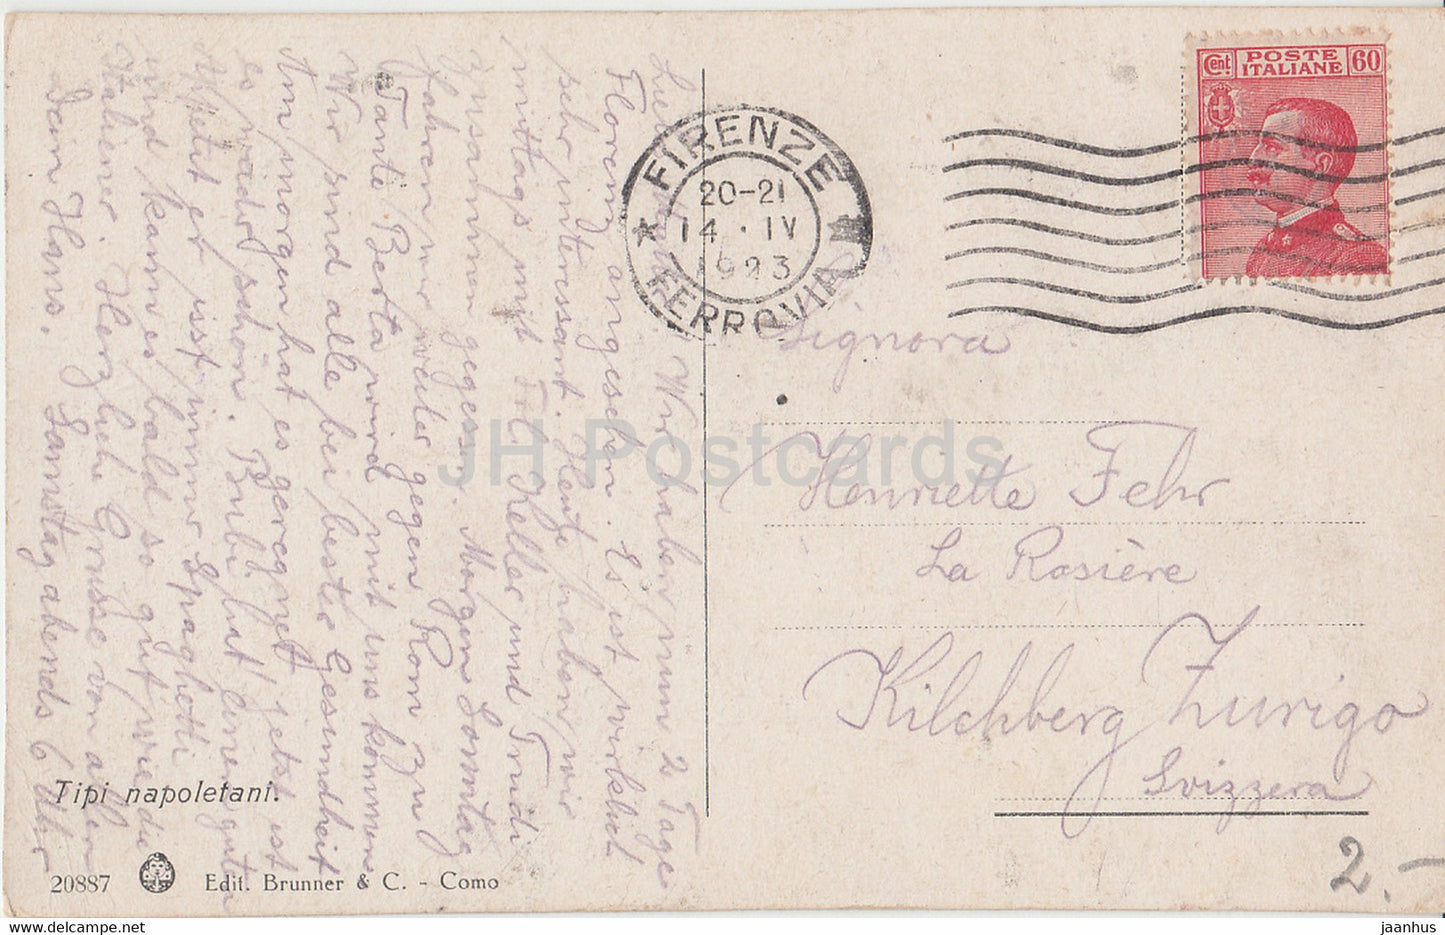 Cent. POSTE ITALIANE 60
FIRENZE
20-21
14 · IV
1923
FERROVIA
Wir haben nun 2 Tage
Florenz angesehen. Es ist wirklich
sehr interessant. Heute haben wir
mittags mit Frl. Keller und Trudi
zusammen gegessen. Morgen Sonntag
fahren wir weiter gegen Rom zu
Tante Berta wird mit uns kommen
Wir sind alle bei bester Gesundheit
Am morgen hat es geregnet jetzt ist
es wieder schön. Bubi hat einen guten
er isst immer Spaghetti
und kann es bald so gut wie die
Italiener. Herzliche Grüsse von allen
dein Hans. Samstag abends 6 Uhr
Signora
Henriette Fehr
La Rosière
Kilchberg Zurigo
Svizzera
Tipi napoletani.
20887 Edit. Brunner & C. - Como
2.-
JH Postcards
www.delcampe.net
jaanhus